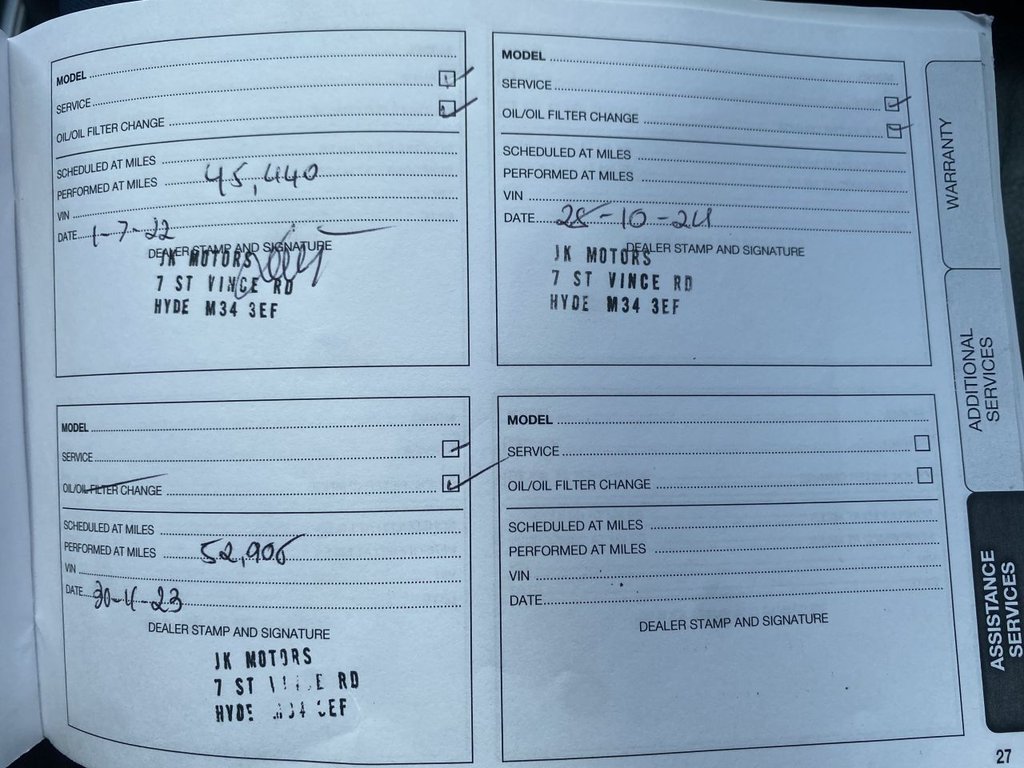 MODEL
SERVICE
OIL/OIL FILTER CHANGE
SCHEDULED AT MILES
PERFORMED AT MILES 45,440
VIN
DATE 1-7-22
DEALER STAMP AND SIGNATURE
JK MOTORS
7 ST VINCE RD
HYDE M34 3EF
MODEL
SERVICE
OIL/OIL FILTER CHANGE
SCHEDULED AT MILES
PERFORMED AT MILES
VIN
DATE 28-10-24
DEALER STAMP AND SIGNATURE
JK MOTORS
7 ST VINCE RD
HYDE M34 3EF
MODEL
SERVICE
OIL/OIL FILTER CHANGE
SCHEDULED AT MILES
PERFORMED AT MILES 52,906
VIN
DATE 30-4-23
DEALER STAMP AND SIGNATURE
JK MOTORS
7 ST RD
HYDE
MODEL
SERVICE
OIL/OIL FILTER CHANGE
SCHEDULED AT MILES
PERFORMED AT MILES
VIN
DATE
DEALER STAMP AND SIGNATURE
WARRANTY
ADDITIONAL
SERVICES
ASSISTANCE
SERVICES
27